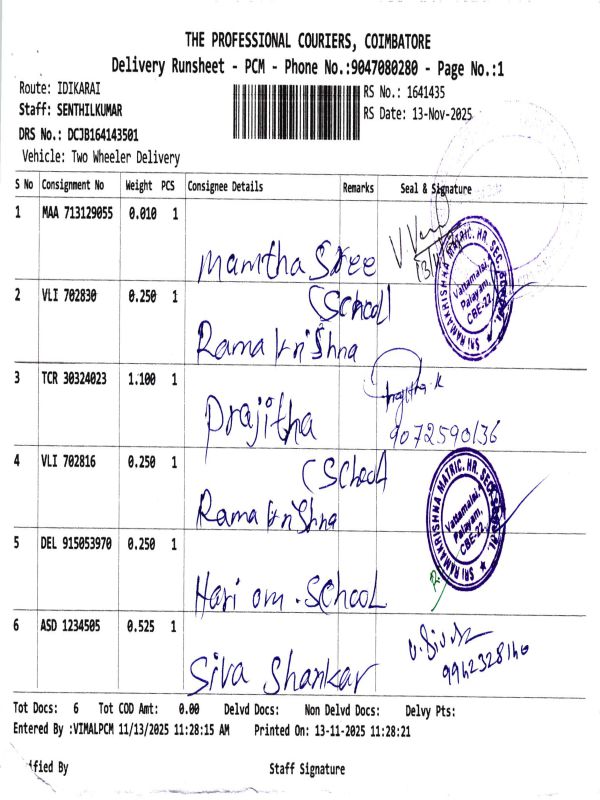 THE PROFESSIONAL COURIERS, COIMBATORE
Delivery Runsheet - PCM - Phone No.:9047080280 - Page No.:1
Route: IDIKARAI
RS No.: 1641435
Staff: SENTHILKUMAR
RS Date: 13-Nov-2025
DRS No.: DCJB164143501
Vehicle: Two Wheeler Delivery
S No Consignment No Weight PCS Consignee Details Remarks Seal & Signature
1 MAA 713129055 0.010 1 Mamtha Sree
SRI RAMAKRISHNA MATRIC. HR. SEC. SCHOOL
Vattamalai, Palayam, CBE-22.
2 VLI 702830 0.250 1 (School)
Rama krishna
3 TCR 30324023 1.100 1 Prajitha
Prajitha.K
9072590136
4 VLI 702816 0.250 1 (School
Rama krishna
SRI RAMAKRISHNA MATRIC. HR. SEC. SCHOOL
Vattamalai, Palayam, CBE-22.
5 DEL 915053970 0.250 1 Hari om . School
6 ASD 1234505 0.525 1 Siva Shankar
Tot Docs: 6 Tot COD Amt: 0.00 Delvd Docs: Non Delvd Docs: Delvy Pts:
Entered By :VIMALPCM 11/13/2025 11:28:15 AM Printed On: 13-11-2025 11:28:21
ified By Staff Signature